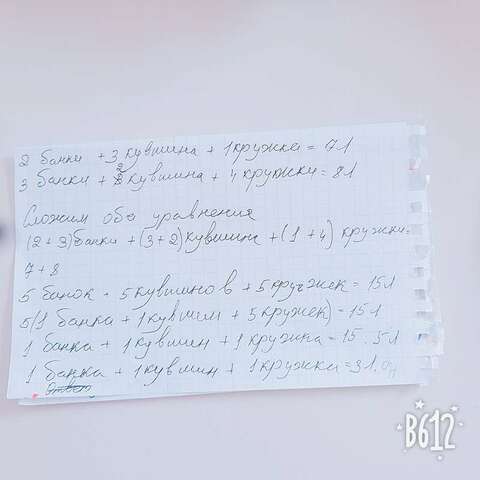 2 банки + 3 кувшина + 1 кружка = 7 л
3 банки + 2 кувшина + 4 кружки = 8 л
Сложим оба уравнения
(2 + 3) банки + (3 + 2) кувшина + (1 + 4) кружки =
7 + 8
5 банок - 5 кувшинов + 5 кружек = 15 л
5(1 банка + 1 кувшин + 5 кружек) = 15 л
1 банка + 1 кувшин + 1 кружка = 15 : 5 л
1 банка + 1 кувшин + 1 кружка = 3 л.
B612